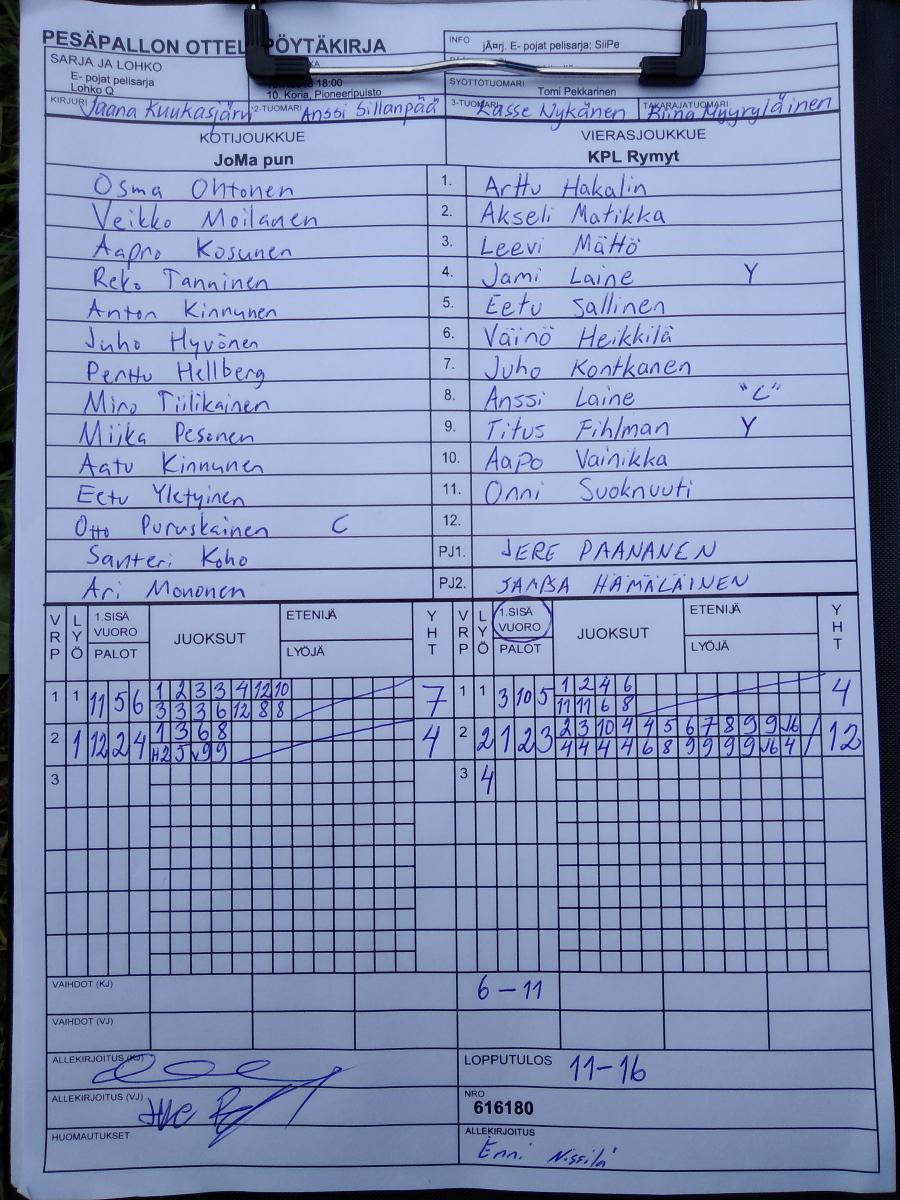 PESÄPALLON OTTEL PÖYTÄKIRJA
INFO jÃ¤rj. E- pojat pelisarja: SiiPe
SARJA JA LOHKO
E- pojat pelisarja
Lohko Q
18:00
10. Koria, Pioneeripuisto
SYÖTTÖTUOMARI
Tomi Pekkarinen
KIRJURI Jaana Kuukasjärvi 2-TUOMARI Anssi Sillanpää 3-TUOMARI Lasse Nykänen TAKARAJATUOMARI Riina Myyryläinen
KOTIJOUKKUE VIERASJOUKKUE
JoMa pun KPL Rymyt
Osma Ohtonen 1. Arttu Hakalin
Veikko Moilanen 2. Akseli Matikka
Aapro Kosunen 3. Leevi Mättö
Reko Tanninen 4. Jami Laine Y
Anton Kinnunen 5. Eetu Sallinen
Juho Hyvönen 6. Väinö Heikkilä
Perttu Hellberg 7. Juho Kontkanen
Miro Tiilikainen 8. Anssi Laine "C"
Miika Pesonen 9. Titus Fihlman Y
Aatu Kinnunen 10. Aapo Vainikka
Eetu Yletyinen 11. Onni Suoknuuti
Otto Puruskainen C 12.
Santeri Koho PJ1. JERE PAANANEN
Ari Mononen PJ2. HÄMÄLÄINEN
VRP LYÖ 1.SISÄ VUORO PALOT JUOKSUT ETENIJÄ LYÖJÄ YHT VRP LYÖ 1.SISÄ VUORO PALOT JUOKSUT ETENIJÄ LYÖJÄ YHT
1 1 11 5 6 1 2 3 3 4 12 10 7 1 1 3 10 5 1 2 4 6 4
3 3 3 6 12 8 8 11 11 6 8
2 1 12 2 4 1 3 6 8 4 2 2 1 2 3 2 3 10 4 4 5 6 7 8 9 9 J6 12
H2 5 v9 9 4 4 4 4 6 8 9 9 9 9 J6 4
3 3 4
VAIHDOT (KJ) 6-11
VAIHDOT (VJ)
ALLEKIRJOITUS (KJ) LOPPUTULOS 11-16
ALLEKIRJOITUS (VJ) NRO
616180
HUOMAUTUKSET ALLEKIRJOITUS
Enni Nissilä